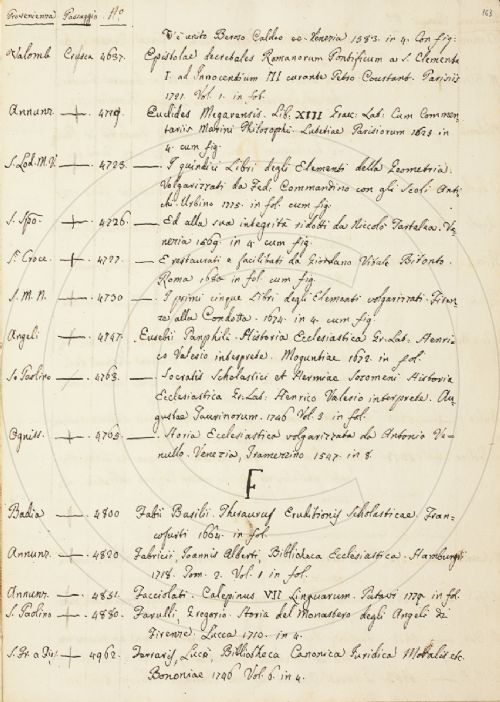 Provenienza Passaggio No
163
Vi è unito Beroso Caldeo ec. Venezia 1583. in 4. Con fig:
Valomb. Crusca 4637. Epistolae decretales Romanorum Pontificum a S. Clemente
I. ad Innocentium III curante Petro Coustant. Parisiis
1721. Vol. 1. in fol.
Annunz. — + — 4719. Euclides Megarensis. Lib. XIII Graec: Lat: Cum Commen-
tariis Marini Philosophi. Lutetiae Parisiorum 1625 in
4. cum fig.
S. Lod. M. V. — 4723. — I quindici Libri degli Elementi della Geometria.
Volgarizzati da Fed. Commandino con gli Scoli Anti-
chi. Urbino 1575. in fol. cum fig.
S. Spo. — + — 4726. — Ed alla sua integrità ridotti da Niccolò Tartalea. Ve-
nezia 1569. in 4. cum fig.
Sa. Croce. — + — 4727. — E restaurati e facilitati da Giordano Vitale Bitonto.
Roma 1680. in fol. cum fig.
S. M. N. — 4730 — I primi cinque Libri degli Elementi volgarizzati. Firen-
ze alla Condotta. 1674. in 4. cum fig.
Angeli — + — 4747. Eusebii Pamphili. Historia Ecclesiastica Gr. Lat. Henri-
co Valesio interprete. Moguntiae 1672. in fol.
Sn Paolino — 4763. — Socratis Scholastici et Hermiae Sozomeni Historia
Ecclesiastica Gr: Lat: Henrico Valesio interprete. Au-
gustae Taurinorum. 1746 Vol. 3. in fol.
Ogniss. — + — 4765. — Storia Ecclesiastica volgarizzata da Antonio Ve-
nullo. Venezia, Tramezzino 1547. in 8.
F
Badia — 4800 Fabii Basilii. Thesaurus Eruditionis Scholasticae. Fran-
cofurti 1664. in fol.
Annunz. — + — 4820 Fabricii, Ioannis Alberti, Bibliotheca Ecclesiastica. Hamburgii
1718. Tom. 2. Vol. 1 in fol.
Annunz. — 4851. Facciolati. Calepinus VII Linguarum. Patavi in fol.
S. Paolino — 4880. Farulli, Gregorio. Storia del Monastero degli Angeli di
Firenze. Lucca 1710. in 4.
S. Fr. a Fie — + — 4962. Ferraris, Lucii, Bibliotheca Canonica Iuridica Moralis etc.
Bononiae 1746 Vol. 6. in 4.